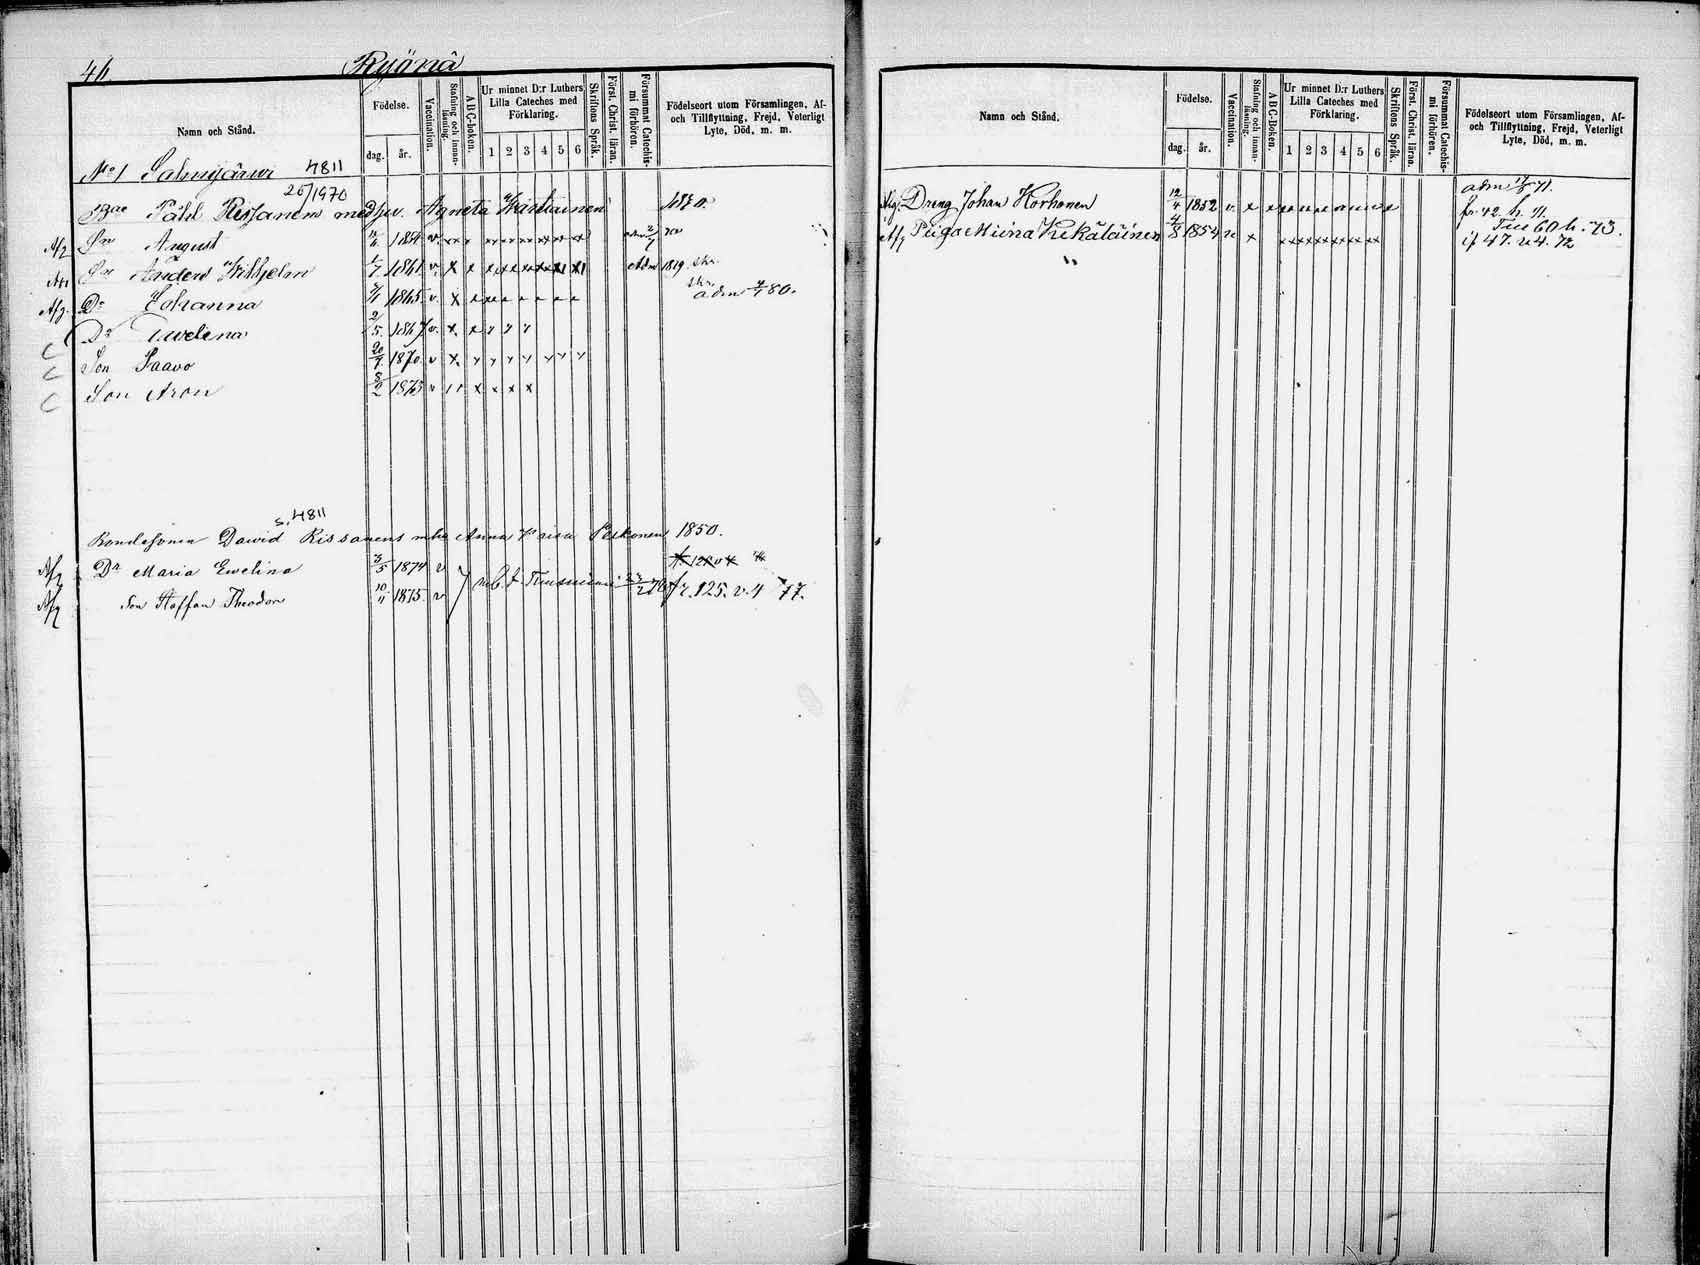 46 Ryönä
Namn och Stånd. Födelse. dag. år. Vaccination. Stafning och innanläsning. ABC-boken. Ur minnet D:r Luthers Lilla Cateches med Förklaring. 1 2 3 4 5 6 Skriftens Språk. Först. Christ. läran. Försummat Catechismi förhören. Födelseort utom Församlingen, Af- och Tillflyttning, Frejd, Veterligt Lyte, Död, m. m.
No 1 Salmijärwi 4811
26/1970
Påhl Rissanens med hu. Agneta
Afg Sn August 1854 v.
Sn Anders Wilhelm 1/7 1861 v. Adm 1819. skr.
Afg. Dr Johanna 1865. v. skr. adm 80.
Dr Ewelina 2/5. 1867 v.
Son Paavo 20/9. 1870. v
Son Aron 8/2 1873 v
s. 4811
Bondesonen Dawid Rissanens Anna Kaisa Peskonen 1850.
Afg Dr Maria Ewelina 3/5 1874 v
Afg Son Staffan Theodor 10/11 1875. v fr. 125. v. 4 77.
Namn och Stånd. Födelse. dag. år. Vaccination. Stafning och innanläsning. ABC-Boken. Ur minnet D:r Luthers Lilla Cateches med Förklaring. 1 2 3 4 5 6 Skriftens Språk. Först. Christ. läran. Försummat Catechismi förhören. Födelseort utom Församlingen, Af- och Tillflyttning, Freid, Veterligt Lyte, Död, m. m.
adm 71.
Afg. Dreng Johan Korhonen 12/4 1852 v. fr 42. h. 71.
Till 60 h. 73.
Afg Piga Miina Kekäläinen 4/8 1854 v if 47. v. 4. 72